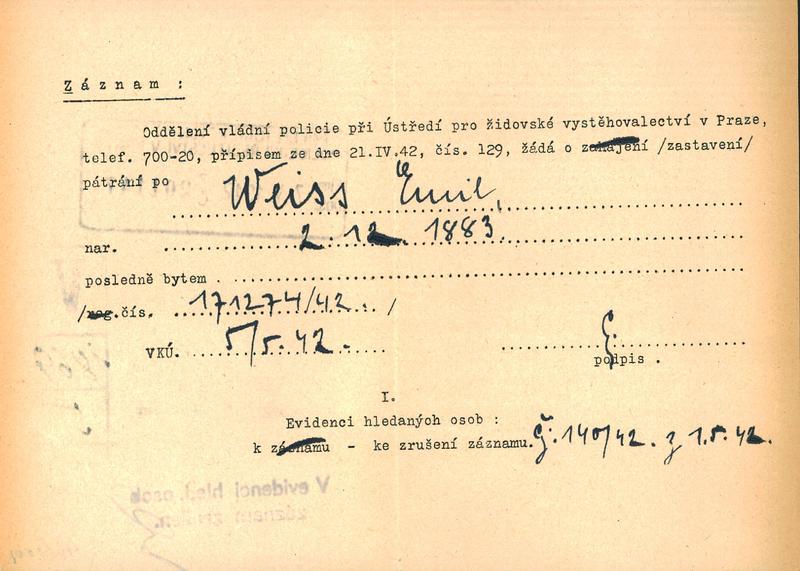 Záznam :
Oddělení vládní policie při Ústředí pro židovské vystěhovalectví v Praze,
telef. 700-20, přípisem ze dne 21.IV.42, čís. 129, žádá o zahájení /zastavení/
pátrání po Weiss Emil,
nar. 2. 12. 1883.
posledně bytem
/nag.čís. 171274/42. /
VKÚ. 5/5. 42.
podpis .
I.
Evidenci hledaných osob :
k záznamu - ke zrušení záznamu. Č. 140/42. z 1.5.42.
V evidenci hled. osob
záznam zrušen.